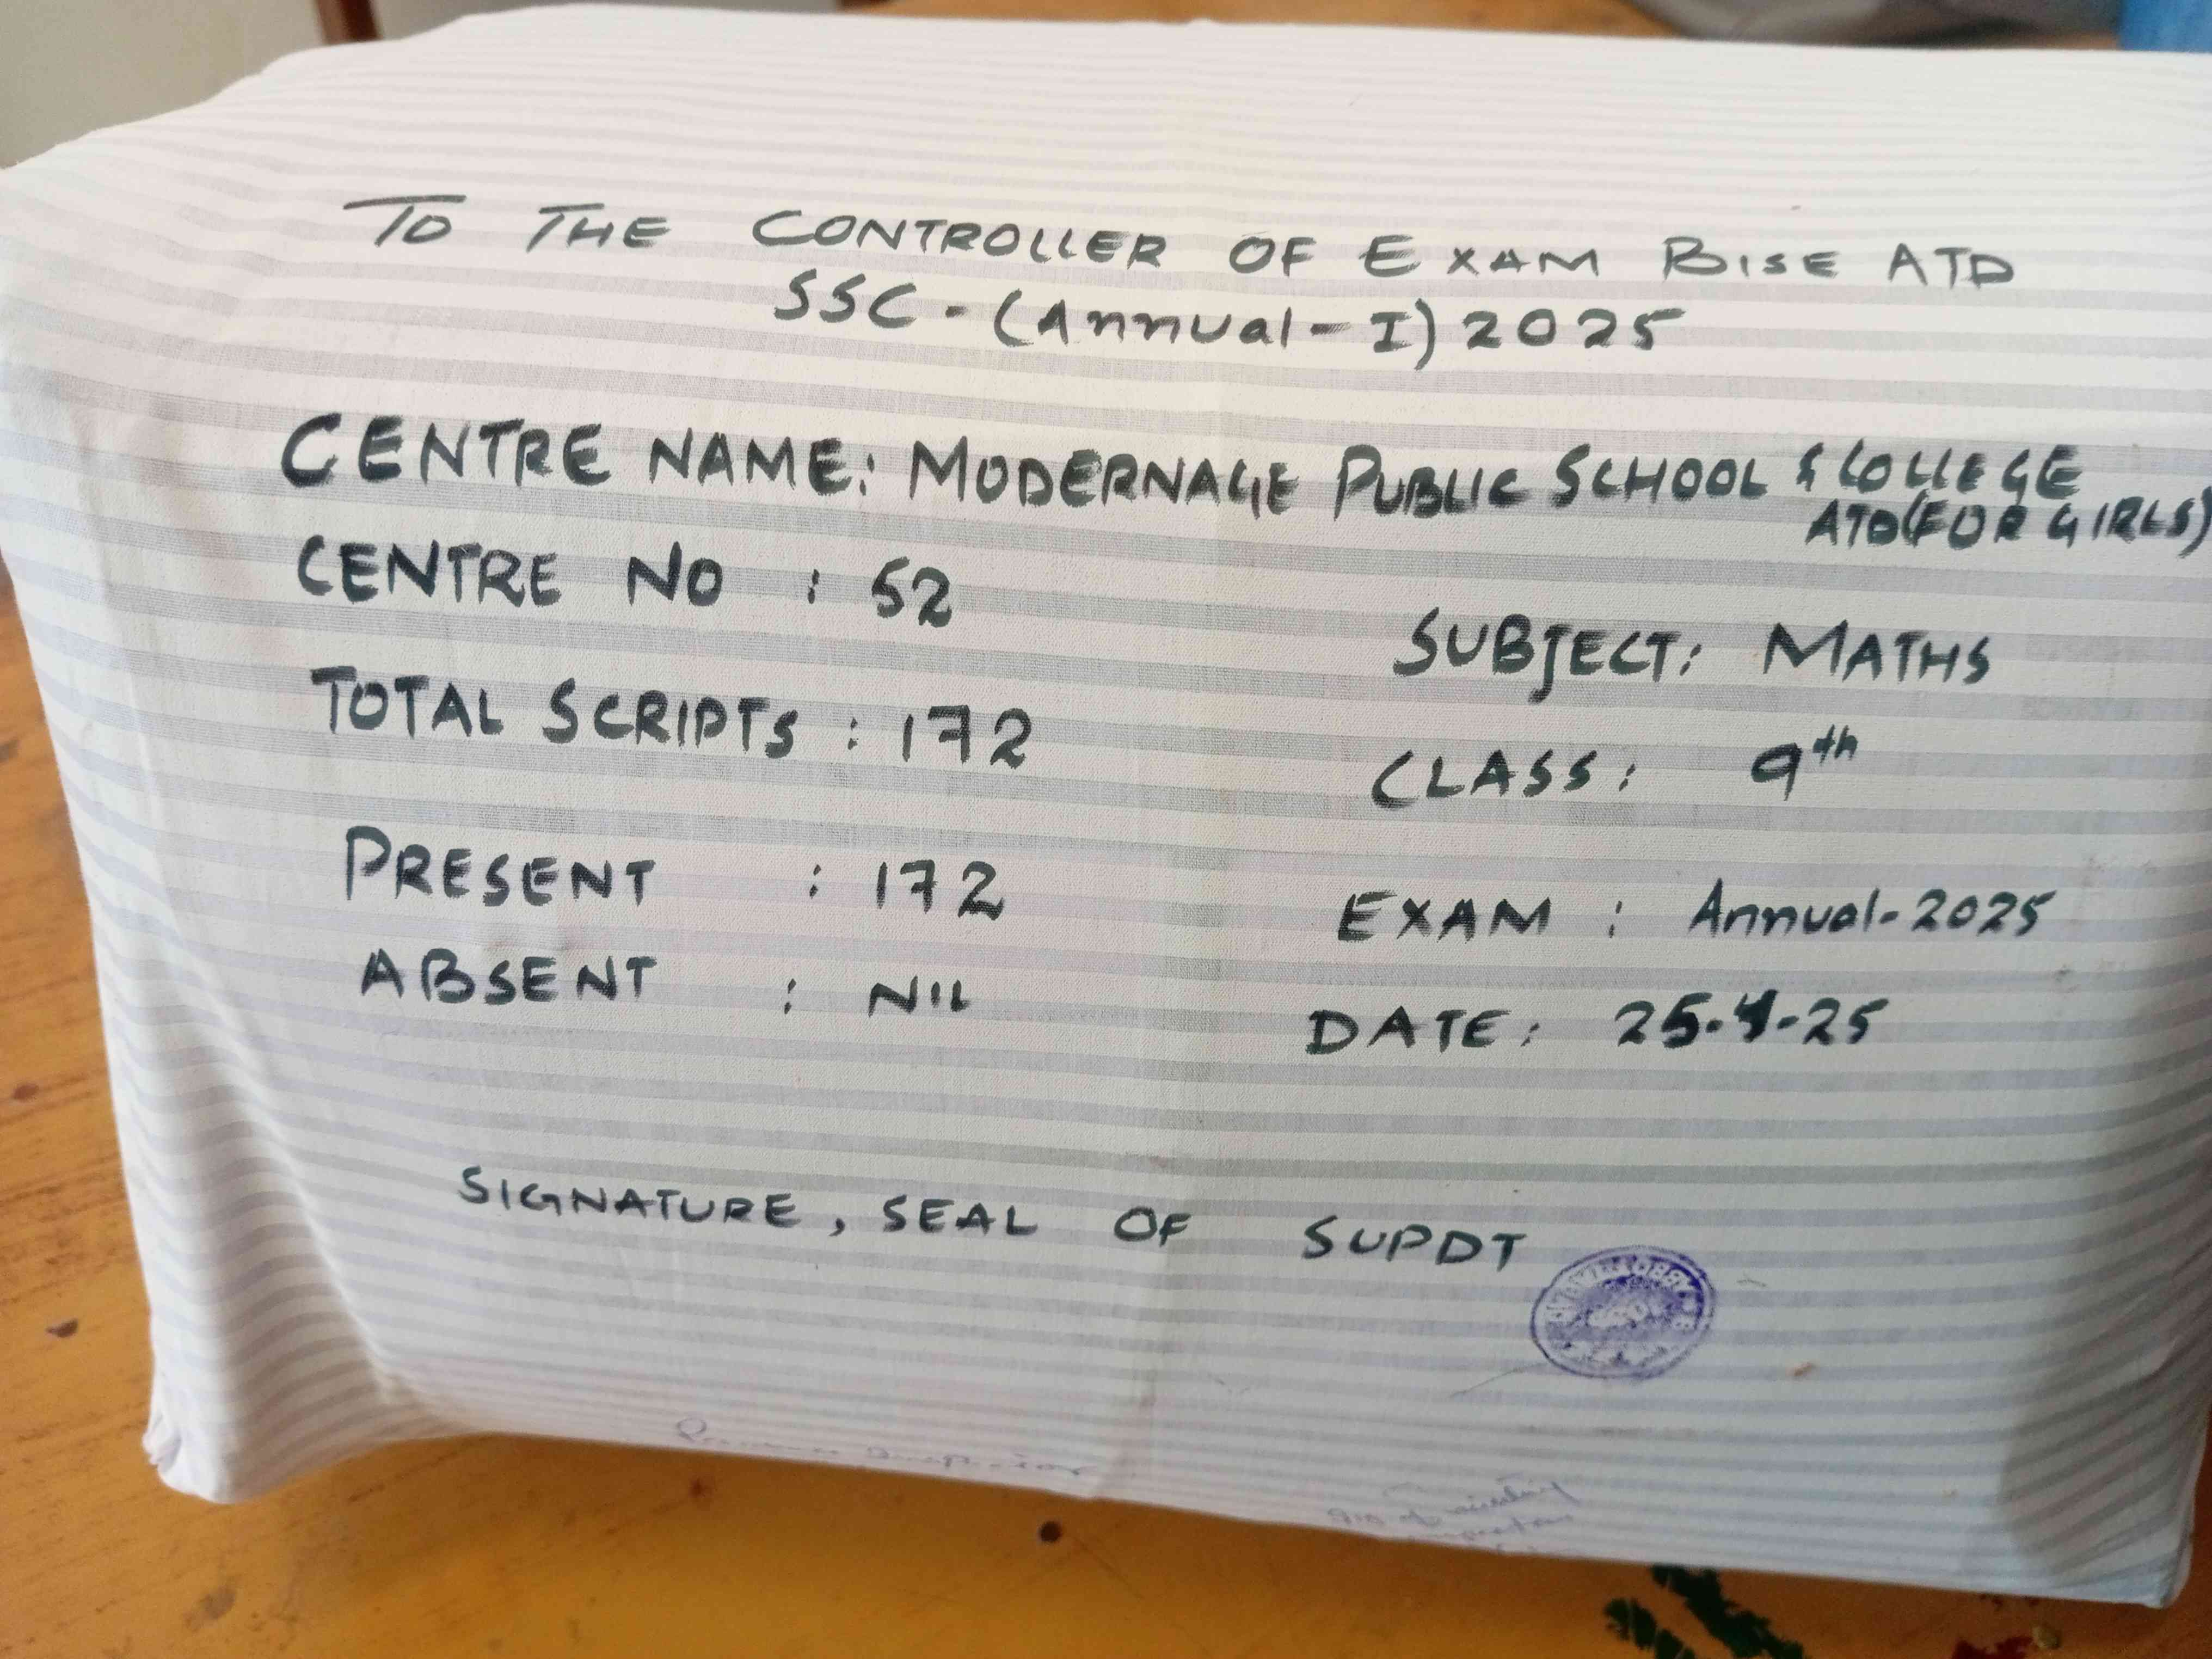 TO THE CONTROLLER OF EXAM BISE ATD
SSC-(Annual-I) 2025
CENTRE NAME: MODERNAGE PUBLIC SCHOOL & COLLEGE
ATD(FOR GIRLS)
CENTRE NO : 52
SUBJECT: MATHS
TOTAL SCRIPTS : 172
CLASS: 9th
PRESENT : 172
EXAM : Annual-2025
ABSENT : NIL
DATE: 25-4-25
SIGNATURE, SEAL OF SUPDT